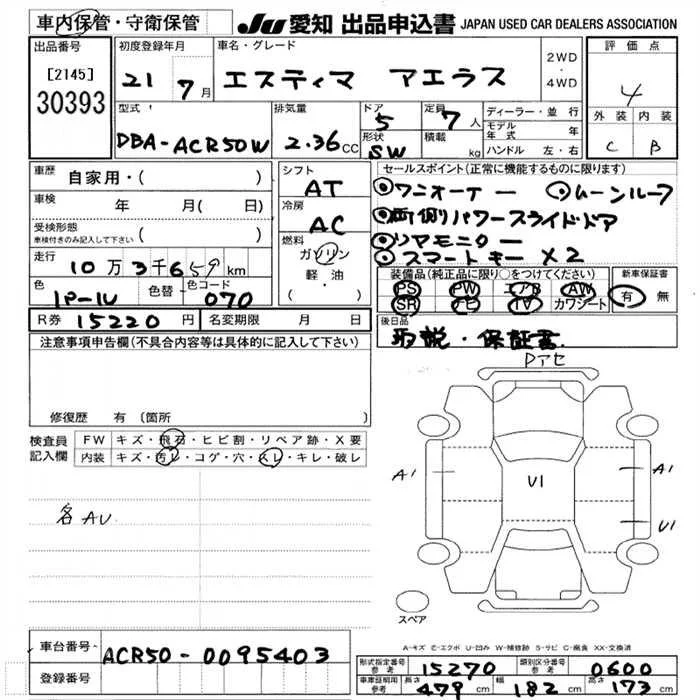 車内保管・守衛保管
JU 愛知 出品申込書 JAPAN USED CAR DEALERS ASSOCIATION
出品番号
[2145]
30393
初度登録年月
21 7月
車名・グレード
エスティマ アエラス
2WD
・
4WD
評価点
4
外装 内装
C B
型式
DBA-ACR50W
排気量
2.36cc
ドア
5
形状
SW
定員
7人
積載
kg
ディーラー・並行
モデル年式 年
ハンドル 左・右
車歴 自家用・( )
車検 年 月( 日)
受検形態
車検付きのみ記入して下さい ( )
走行 10万3千659km
色 パール 色替 色コード 070
シフト
AT
冷房
AC
燃料
ガソリン
軽・油
( )
セールスポイント(正常に機能するものに限ります)
ワニオーナー ムーンルーフ
両側パワースライドドア
リヤモニター
スマートキー×2
装備品(純正品に限り○をつけてください)
PS PW エアB AW
SR ナビ TV カワシート
新車保証書
有 無
R券 15220円 名変期限 月 日
後日品
取説・保証書
注意事項申告欄(不具合内容等は具体的に記入して下さい)
修復歴 有(箇所 )
検査員記入欄
FW キズ・飛石・ヒビ割・リペア跡・X要
内装 キズ・汚レ・コゲ・穴・スレ・キレ・破レ
各AU
Dアセ
A1
U1
A1
U1
スペア
A-キズ E-エクボ U-凹み W-補修跡 S-サビ C-腐食 XX-交換済
車台番号 ACR50-0095403
登録番号
形式指定番号 参考 15270 類別区分番号 参考 0600
車庫証明用 参考 長さ 479cm 幅 182cm 高さ 173cm